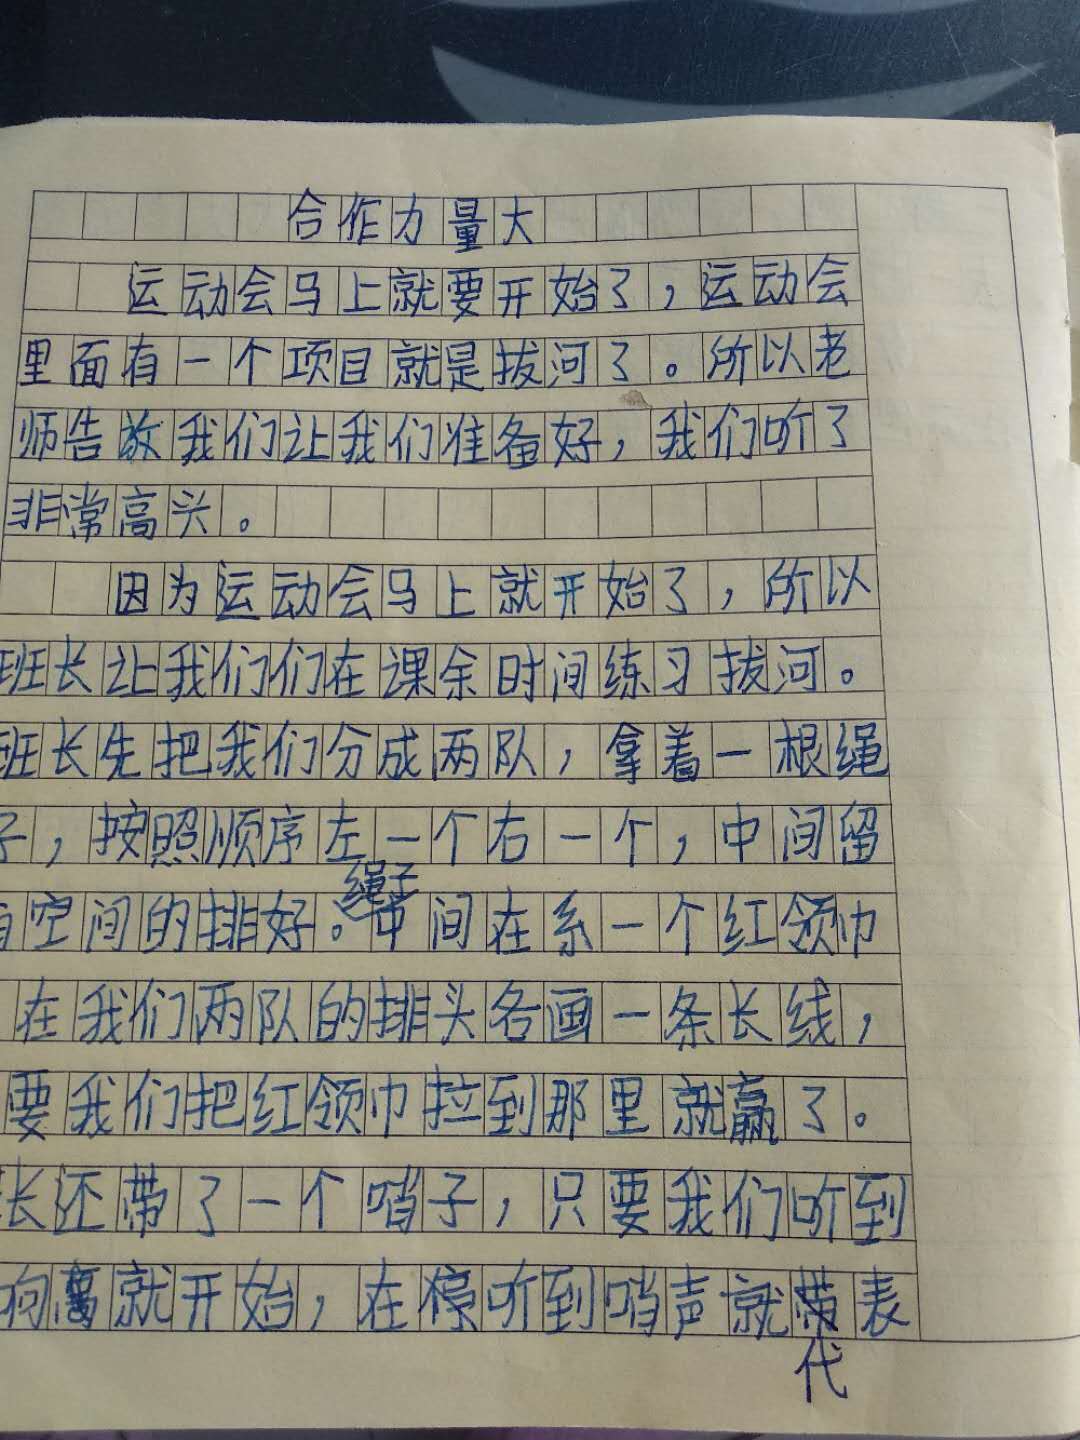 合作力量大
运动会马上就要开始了，运动会
里面有一个项目就是拔河了。所以老
师告放我们让我们准备好，我们听了
非常高兴。
因为运动会马上就开始了，所以
班长让我们们在课余时间练习拔河。
班长先把我们分成两队，拿着一根绳
子，按照顺序左一个右一个，中间留
有空间的排好。绳子中间在系一个红领巾
在我们两队的排头各画一条长线，
要我们把红领巾拉到那里就赢了。
长还带了一个哨子，只要我们听到
就开始，在停听到哨声就代表